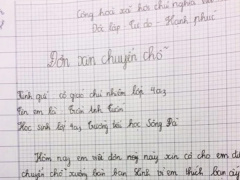 Cộng hoà xã hội chủ nghĩa
Độc lập Tự do - Hạnh phúc
Đơn xin chuyển chỗ
Kính gửi cô giáo chủ nhiệm lớp 4a3
Tên em là: Trần
Học sinh lớp 4a3 Trường tiểu học Sông Đà
Hôm nay em viết đơn này xin cô cho em được
chuyển chỗ xuống bàn bạn Linh vì em thích bạn ấy